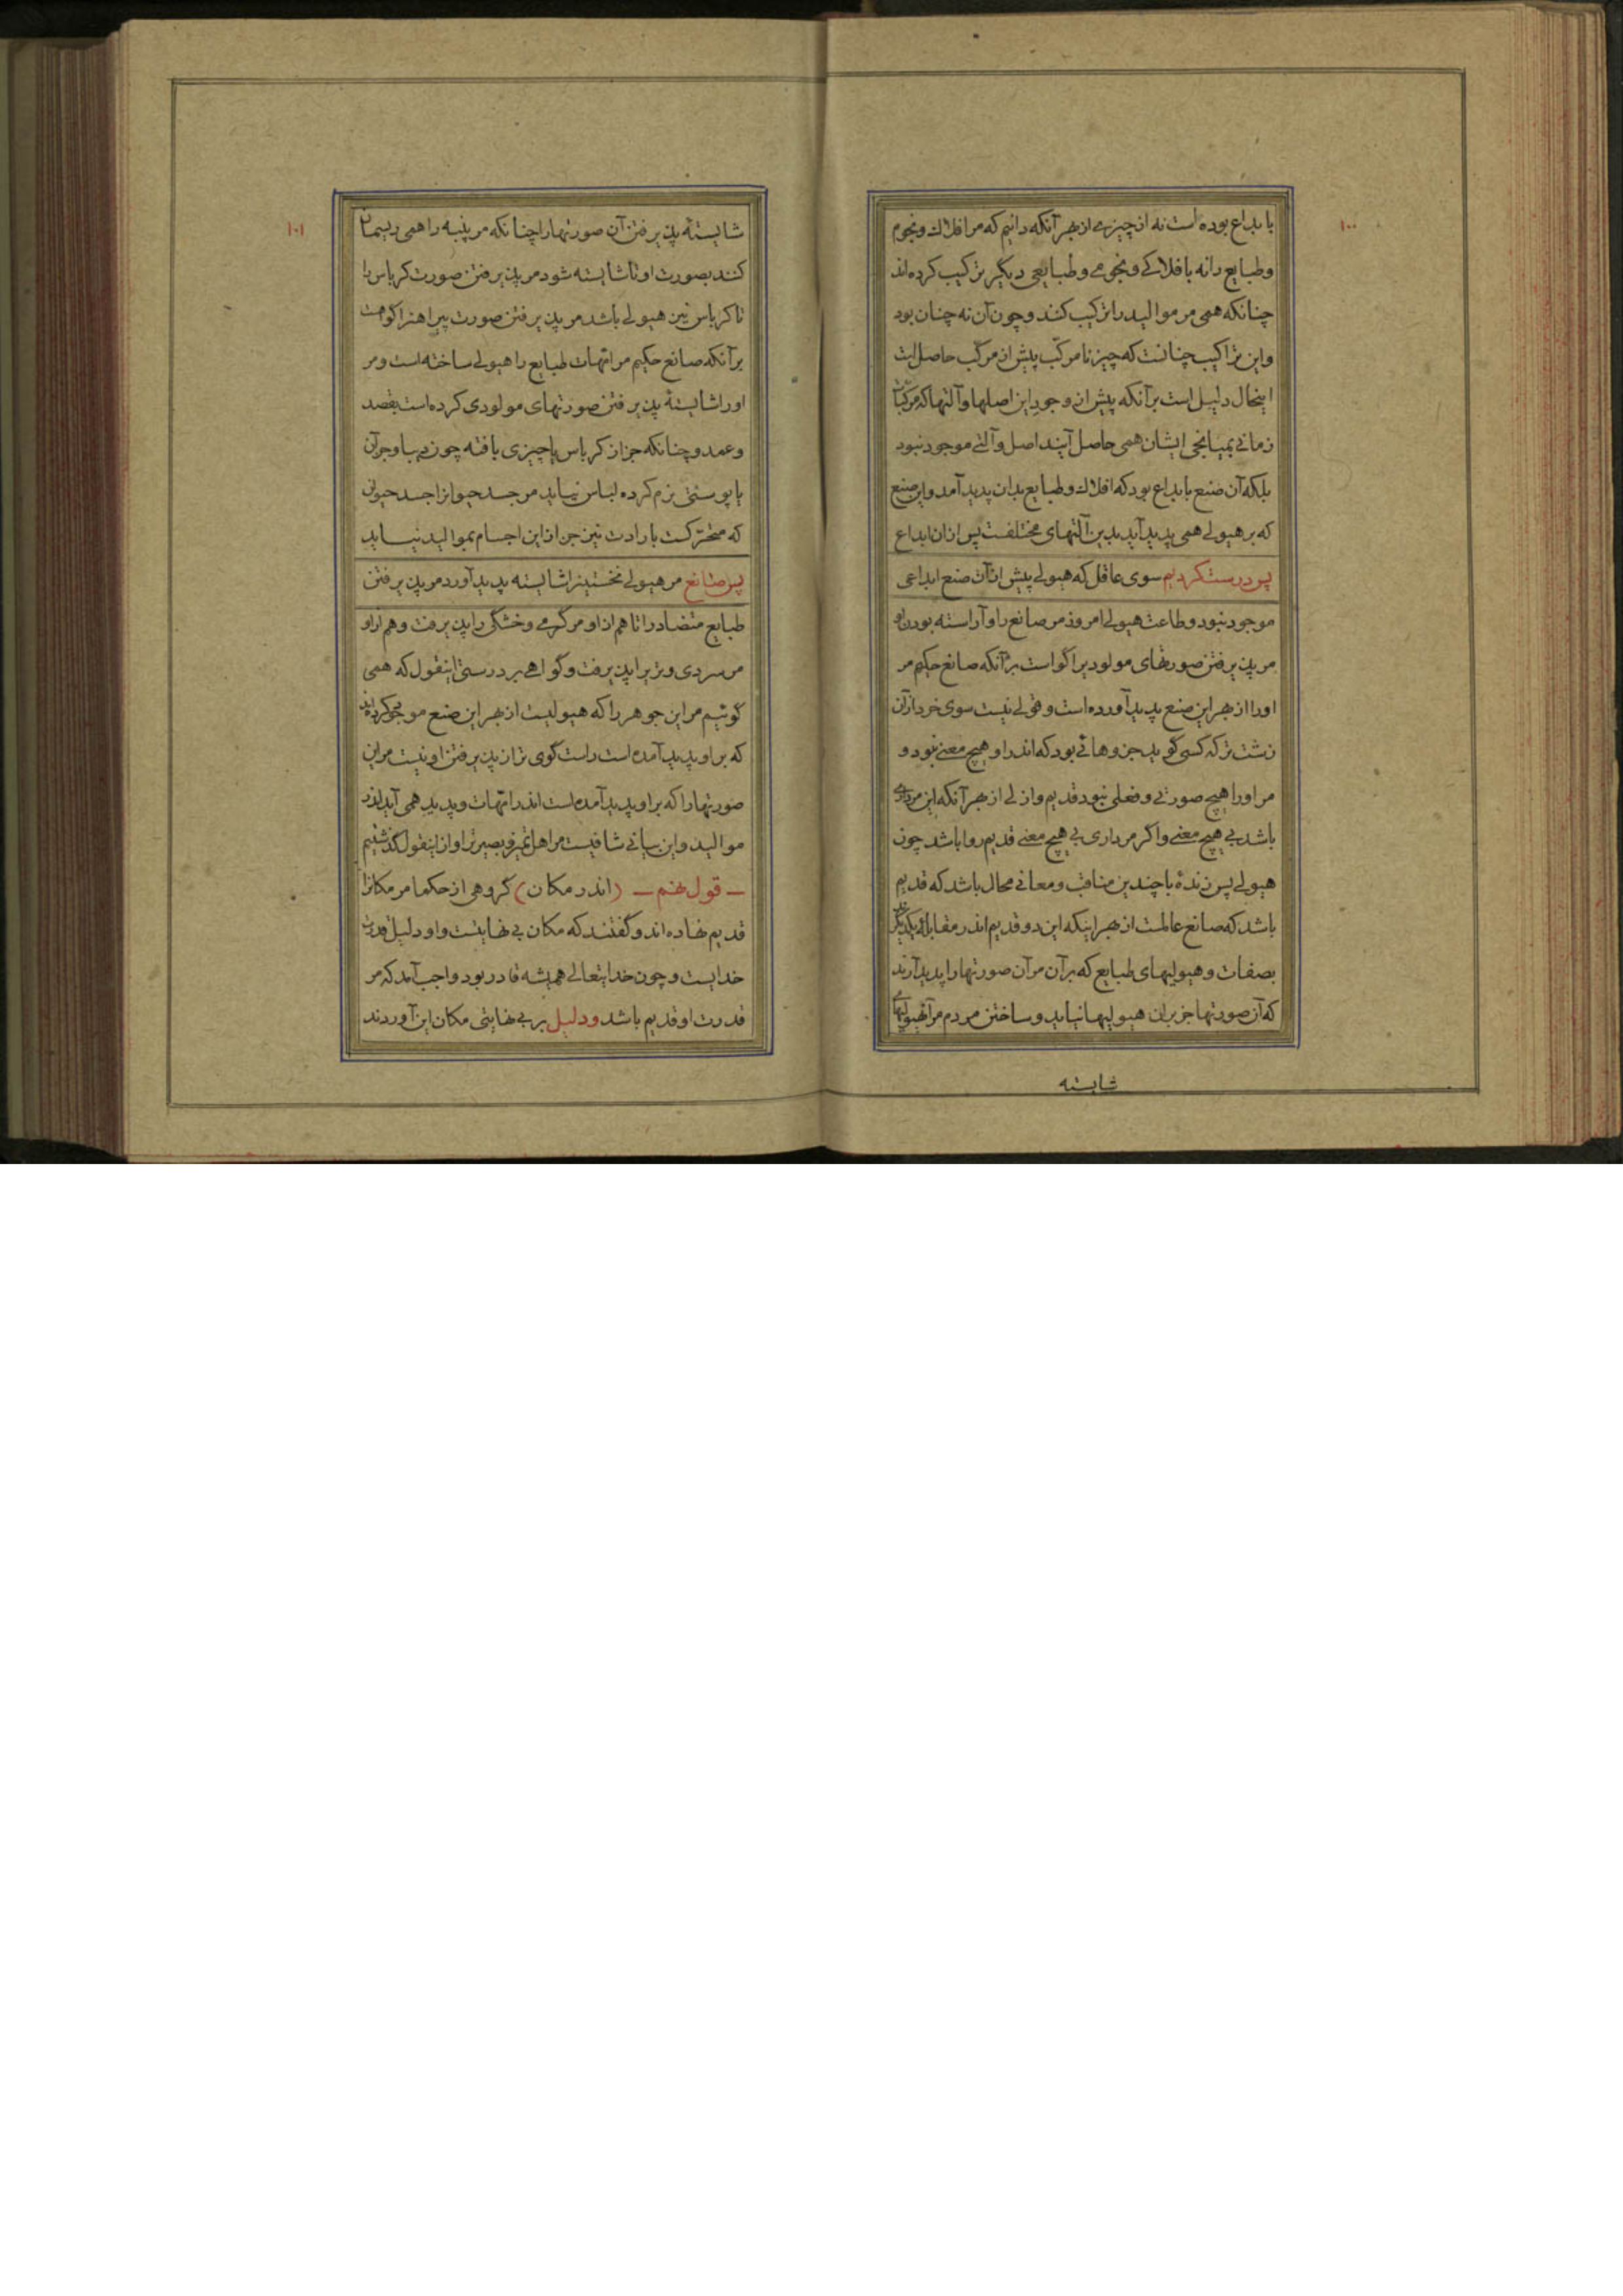 ۱۰۰
بابداع بوده است نه از چیزی از بهر آنکه دانیم که مر افلاک و نجوم
و طبایع را نه با فلاکی و نجومی و طبایعی دیگر ترکیب کرده‌اند
چنانکه همی مر موالید را ترکیب کنند و چون آن نه چنان بود
و این تراکیب چنانست که چیز نامرکّب پیش از مرکّب حاصل است
اینحال دلیل است بر آنکه پیش از وجود این اصلها و آلتها که مرکبات
زمانی بمیانجی ایشان همی حاصل آیند اصل و آلتی موجود نبود
بلکه آن صنع بابداع بود که افلاک و طبایع بدان پدید آمد و این صنع
که بر هیولی همی پدید آید بدین آلتهای مختلفست پس از ان ابداع
پس درست کردیم سوی عاقل که هیولی پیش از آن صنع ابداعی
موجود نبود و طاعت هیولی امروز مر صانع را و آراسته بودن او
مر پذیرفتن صورتهای مولود یرا گواست بر آنکه صانع حکیم مر
اورا از بهر این صنع پدید آورده است و قولی نیست سوی خرد از آن
زشت تر که کسی گوید جزوهائی بود که اندر او هیچ معنی نبود و
مر اورا هیچ صورتی و فعلی نبود قدیم و ازلی از بهر آنکه این مرداری
باشد بی هیچ معنی و اگر مرداری بی هیچ معنی قدیم روا باشد چون
هیولی پس زندهٔ با چندین مناقب و معانی محال باشد که قدیم
باشد که صانع عالمست از بهر اینکه این دو قدیم اندر مقابلهٔ یکدیگرند
بصفات و هیولیهای طبایع که بر آن مر آن صورتها را پدید آرند
که آن صورتها جز بران هیولیها نیاید و ساختن مردم مر آن هیولیها
شایسته
۱۰۱
شایستهٔ پذیرفتن آن صورتها را چنانکه مر پنبه را همی ریسمان
کنند بصورت او تا شایسته شود مر پذیرفتن صورت کرباس را
تا کرباس نیز هیولی باشد مر پذیرفتن صورت پیراهن را گواهست
بر آنکه صانع حکیم مر امّهات طبایع را هیولی ساخته است و مر
اورا شایستهٔ پذیرفتن صورتهای مولودی کرده است بقصد
و عمد و چنانکه جز از کرباس یا چیزی بافته چون دیبا و جز آن
یا پوستی نرم کرده لباس نیاید مر جسد حیوانرا جسد حیوان
که متحرّکست بارادت نیز جز از این اجسام بموالید نیاید
پس صانع مر هیولی نخستین را شایسته پدید آورد مر پذیرفتن
طبایع متضاد را تا هم از او مر گرمی و خشگی را پذیرفت و هم از او
مر سردی و تریرا پذیرفت و گواهی بر درستی اینقول که همی
گوئیم مر این جوهر را که هیولیست از بهر این صنع موجود کرده‌اند
که بر او پدید آمده است راست گوی تر از پذیرفتن او نیست مر این
صورتها را که بر او پدید آمده است اندر امّهات و پدید همی آید اندر
موالید و این بیانی شافیست مر اهل تمیز و بصیرت را و از اینقول گذشتیم
— قول نهم — (اندر مکان) گروهی از حکما مر مکانرا
قدیم نهاده‌اند و گفتند که مکان بی نهایتست و او دلیل قدرت
خدایست و چون خدایتعالی همیشه قادر بود واجب آمد که مر
قدرت او قدیم باشد و دلیل بر بی نهایتی مکان این آوردند